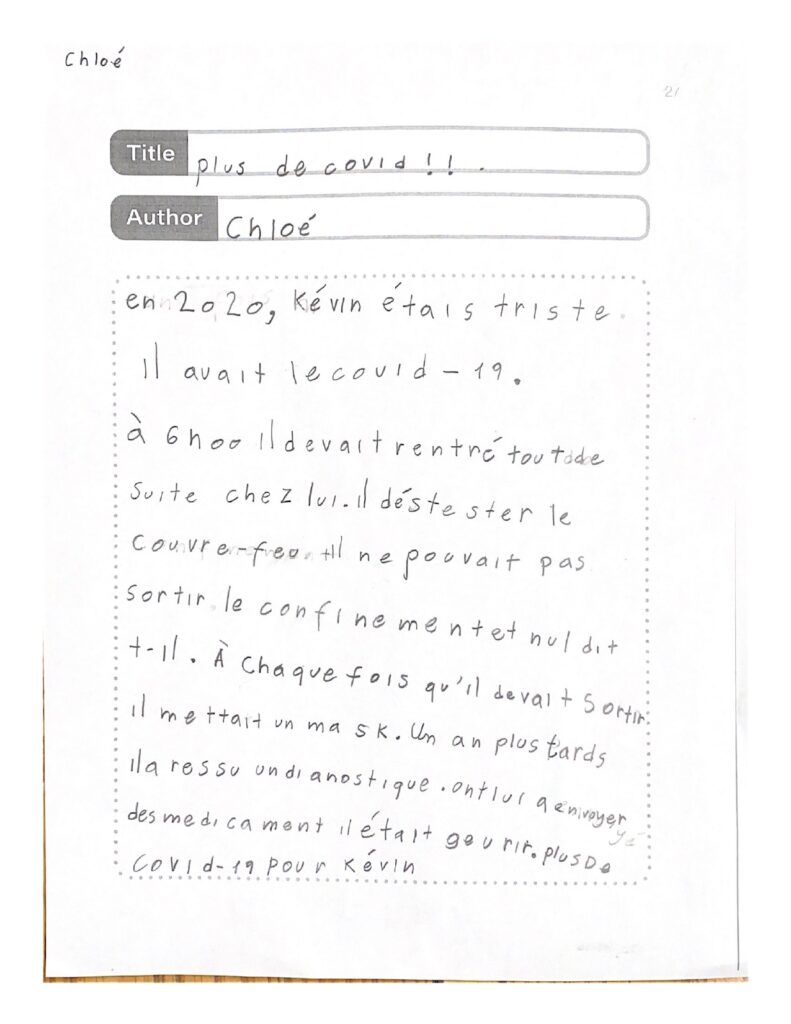 Chloé
21
Title plus de covid !! .
Author Chloé
en 2020, Kévin étais triste.
il avait le covid-19.
à 6h00 il devait rentré tout de
suite chez lui. il déstester le
couvre-feo. il ne pouvait pas
sortir. le confinement et nul dit
t-il. À chaque fois qu'il devait sortir.
il mettait un mask. Un an plus tards
il a ressu un dianostique. ont lui a envoyer
des medicament il était geurir. plus De
Covid-19 pour Kévin